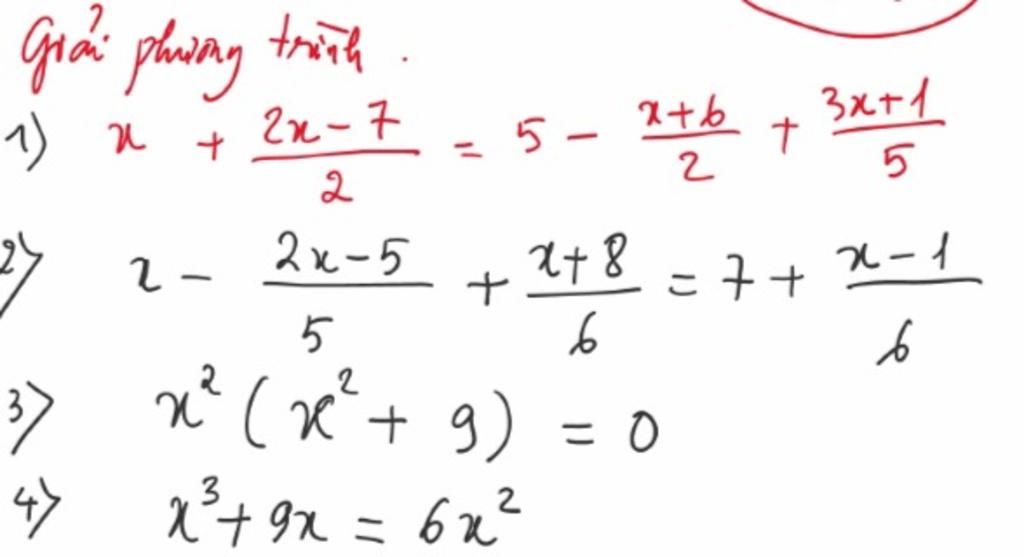 Giải phương trình.
1) x + \frac{2x-7}{2} = 5 - \frac{x+6}{2} + \frac{3x+1}{5}
2) x - \frac{2x-5}{5} + \frac{x+8}{6} = 7 + \frac{x-1}{6}
3) x² (x² + 9) = 0
4) x³ + 9x = 6x²